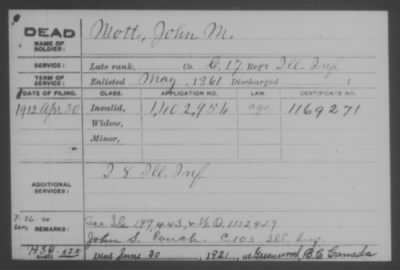 DEAD
NAME OF SOLDIER: Mott, John M.
SERVICE: Late rank, Co. C. 17 Reg't Ill. Inf.
TERM OF SERVICE: Enlisted May, 1861 Discharged 1
DATE OF FILING. CLASS. APPLICATION NO. LAW. CERTIFICATE NO.
1912 Apr. 30 Invalid, 1,402,956 age 1169271
Widow,
Minor,
ADDITIONAL SERVICES: I 8 Ill. Inf.
7-26-20
REMARKS: 197,443, 1132429
John S. Couch. C 103 Ill. Inf.
Died June 30, 1921, at Greenwood, B.C. Canada